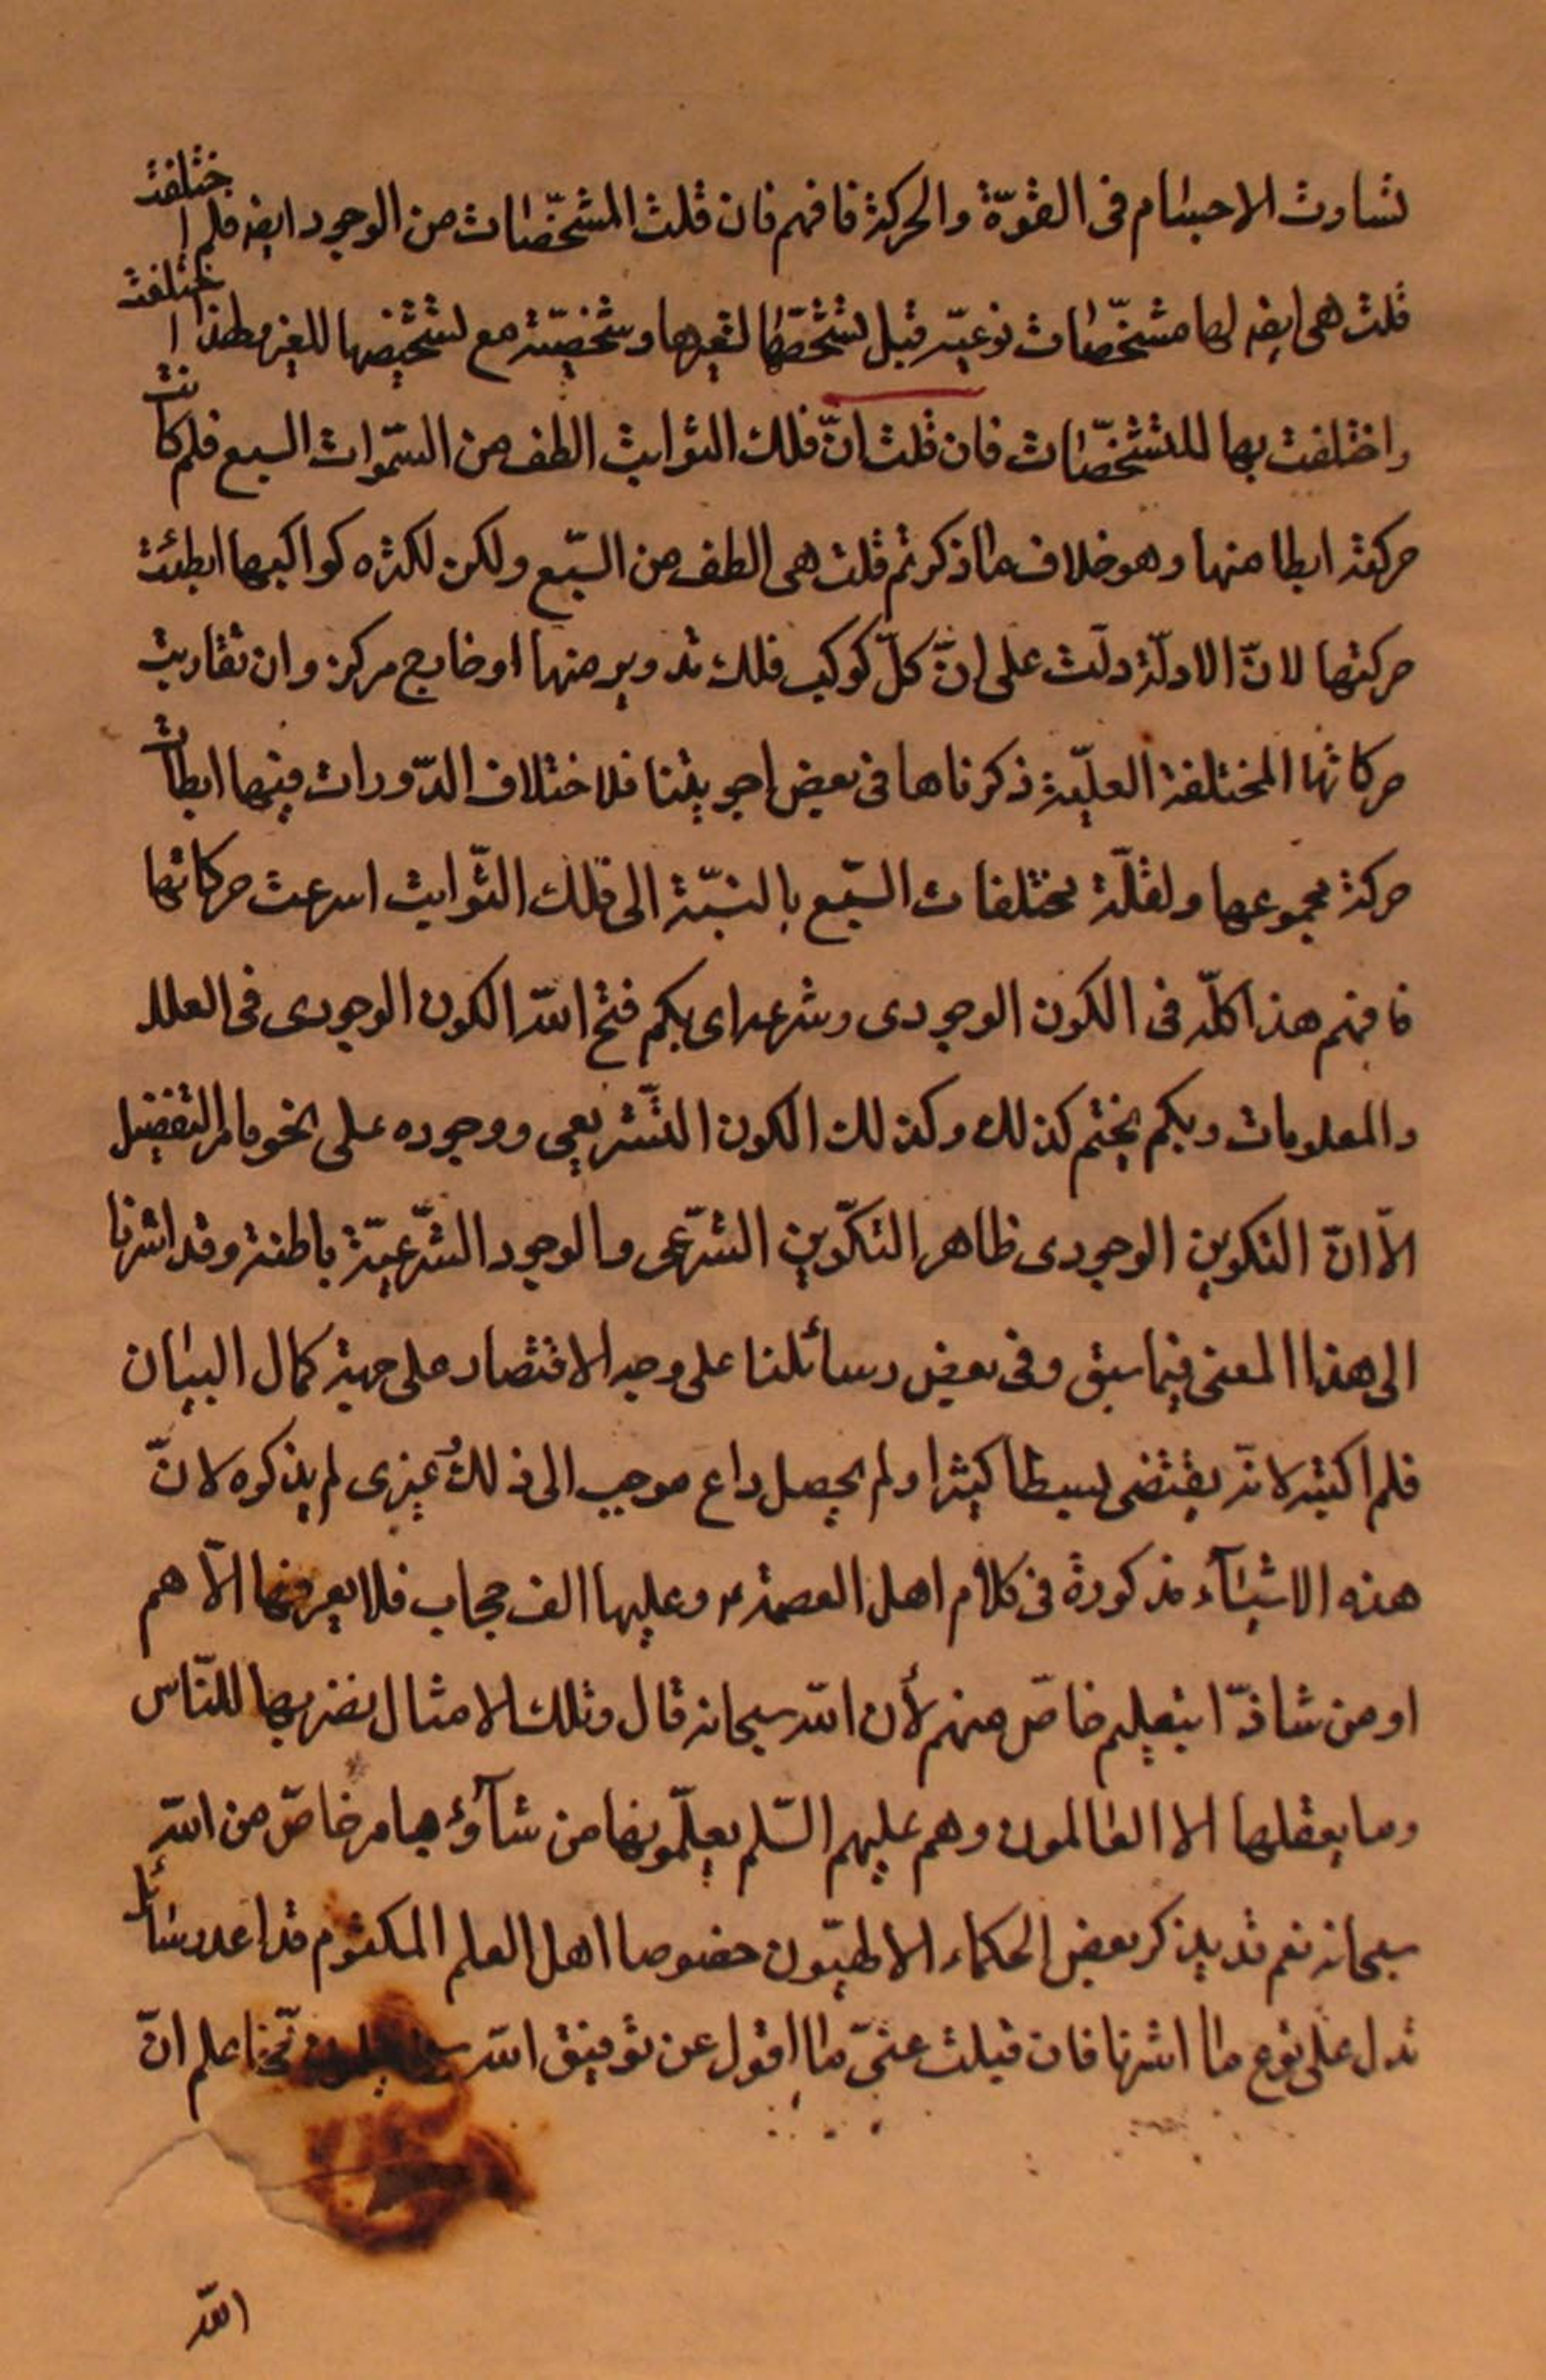 تساوت الاجسام فى القوّة والحركة فافهم فان قلت المشخّصات من الوجود ايضا فلم اختلفت
قلت هى ايضا لها مشخّصات نوعيّة قبل تشخّصها لغيرها وشخصيّة مع تشخيصها للغير فلهذا اختلفت
واختلفت بها للمتشخّصات فان قلت انّ فلك الثوابت الطف من السّموات السبع فلم كانت
حركته ابطا منها وهو خلاف ما ذكرتم قلت هى الطف من السّبع ولكن لكثره كواكبها ابطئت
حركتها لانّ الادلّة دلّت على انّ كلّ كوكب فلك تدوير منها او خارج مركز وان تقاربت
حركاتها المختلفة لعلّة ذكرناها فى بعض اجوبتنا فلاختلاف الدّورات فيها ابطات
حركة مجموعها ولقلّة مختلفات السّبع بالنسّبة الى فلك الثّوابت اسرعت حركاتها
فافهم هذا كلّه فى الكون الوجودى وشرعه اى بكم فتح اللّه الكون الوجودى فى العلل
والمعلومات وبكم يختم كذلك وكذلك الكون التّشريعى ووجوده على نحو ما مر التفضيل
الّا انّ التكوين الوجودى ظاهر التكّوين الشرّعى والوجود الشّرعيّة باطنه وقد اشرنا
الى هذا المعنى فيما سبق وفى بعض رسائلنا على وجه الاقتصار على جهة كمال البيان
فلم اكتبه لانّه يقتضى بسطا كثيرا ولم يحصل داع موجب الى ذلك وغيرى لم يذكره لانّ
هذه الاشياء مذكورة فى كلام اهل العصمة ع وعليها الف حجاب فلا يعرفها الّا هم
او من شاؤا بتعليم خاصّ منهم لأن اللّه سبحانه قال وتلك الامثال نضربها للنّاس
وما يعقلها الا العالمون وهم عليهم السّلم يعلّمونها من شآؤا بامر خاصّ من اللّه
سبحانه نعم قد يذكر بعض الحكماء الالهيّون خصوصا اهل العلم المكتوم قواعد رسائل
تدل على نوع ما اشرنا فان قبلت عنّى ما اقول عن توفيق اللّه اعلم انّ
اللّه